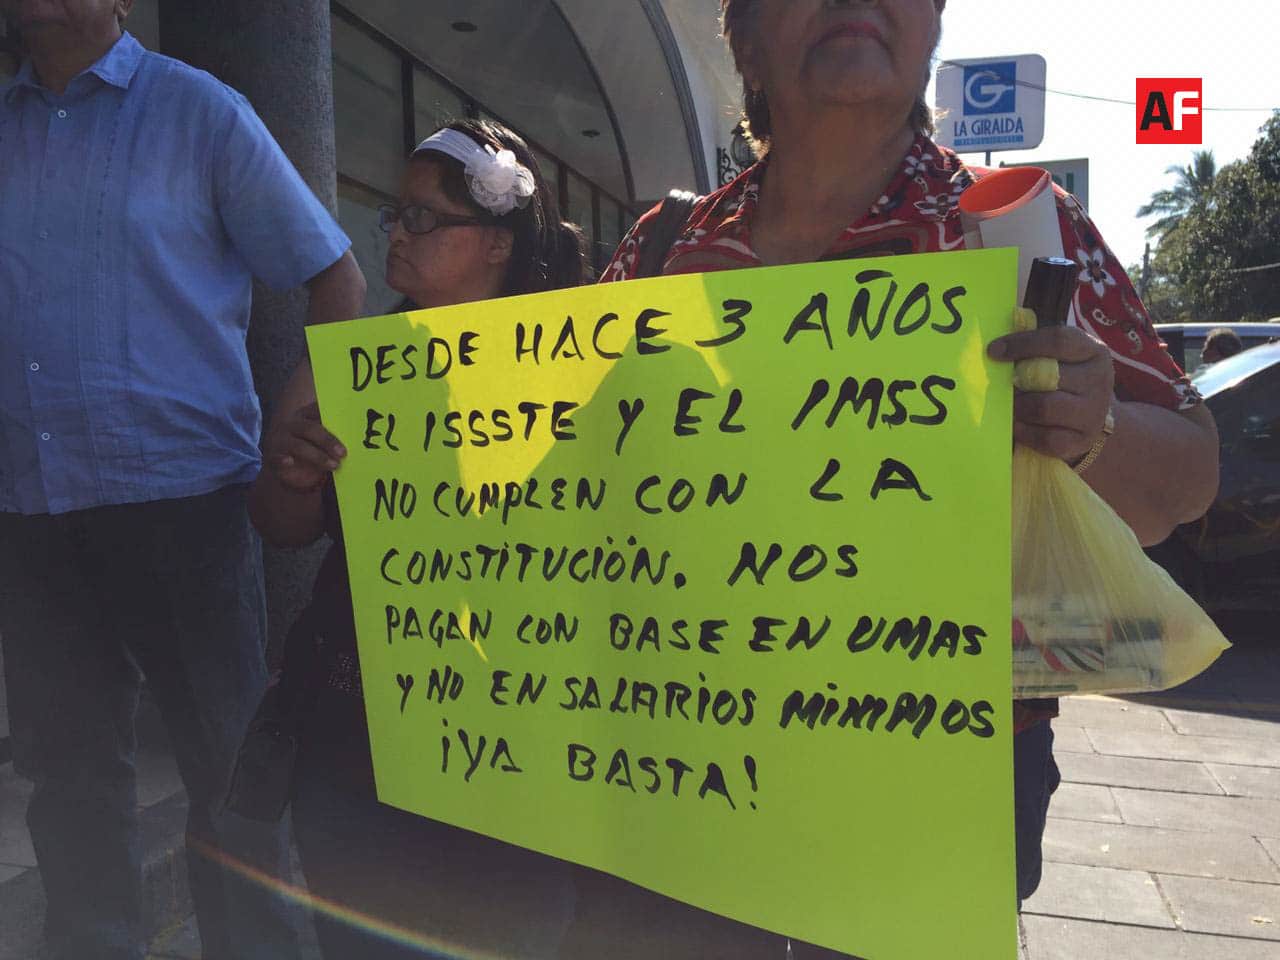 AF
LA GIRALDA
DESDE HACE 3 AÑOS
EL ISSSTE Y EL IMSS
NO CUMPLEN CON LA
CONSTITUCIÓN. NOS
PAGAN CON BASE EN UMAS
Y NO EN SALARIOS MINIMOS
¡YA BASTA!